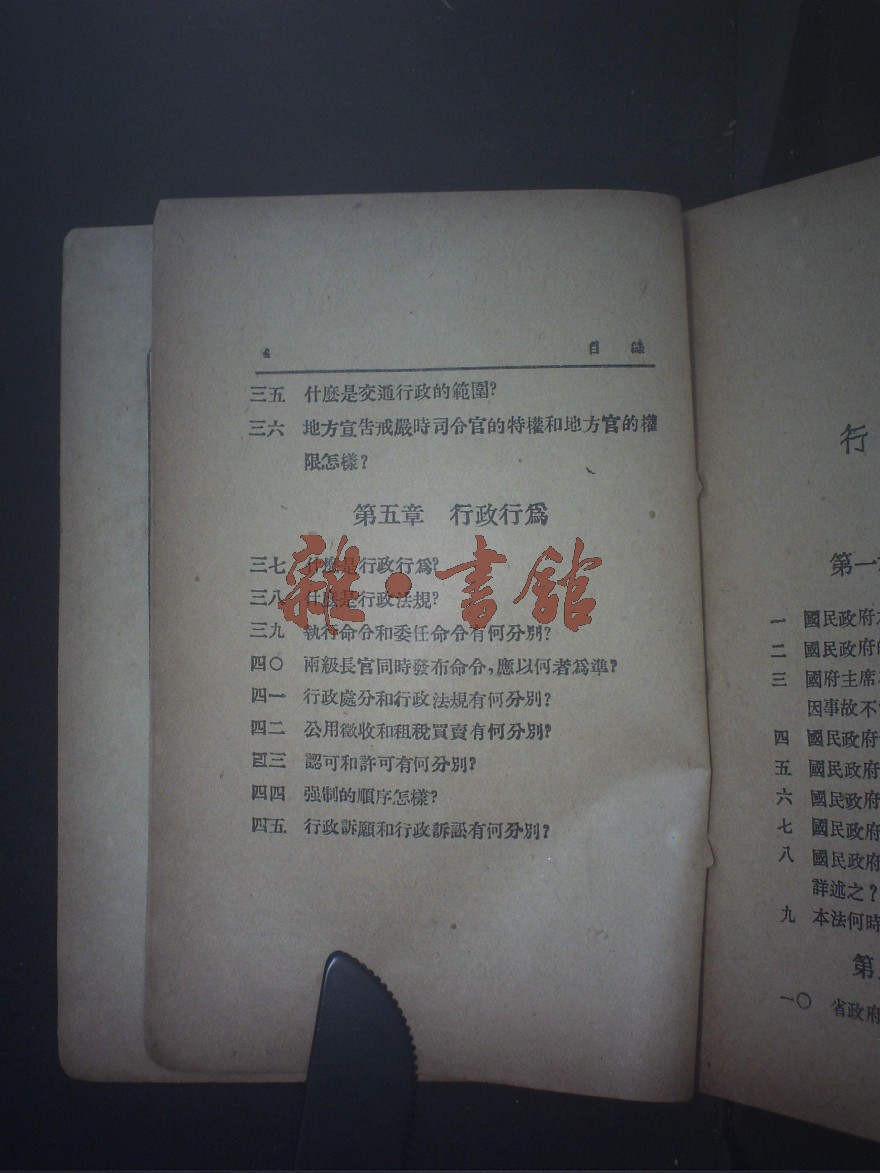 目錄
三五 什麼是交通行政的範圍?
三六 地方宣告戒嚴時司令官的特權和地方官的權
限怎樣?
第五章 行政行爲
三七 什麼是行政行爲?
三八 什麼是行政法規?
三九 執行命令和委任命令有何分別?
四〇 兩級長官同時發布命令,應以何者爲準?
四一 行政處分和行政法規有何分別?
四二 公用徵收和租稅買賣有何分別?
四三 認可和許可有何分別?
四四 强制的順序怎樣?
四五 行政訴願和行政訴訟有何分別?
雜·書館
行
第一
一 國民政府
二 國民政府
三 國府主席
因事故不
四 國民政府
五 國民政府
六 國民政府
七 國民政府
八 國民政府
詳述之?
九 本法何時
第
一〇 省政府